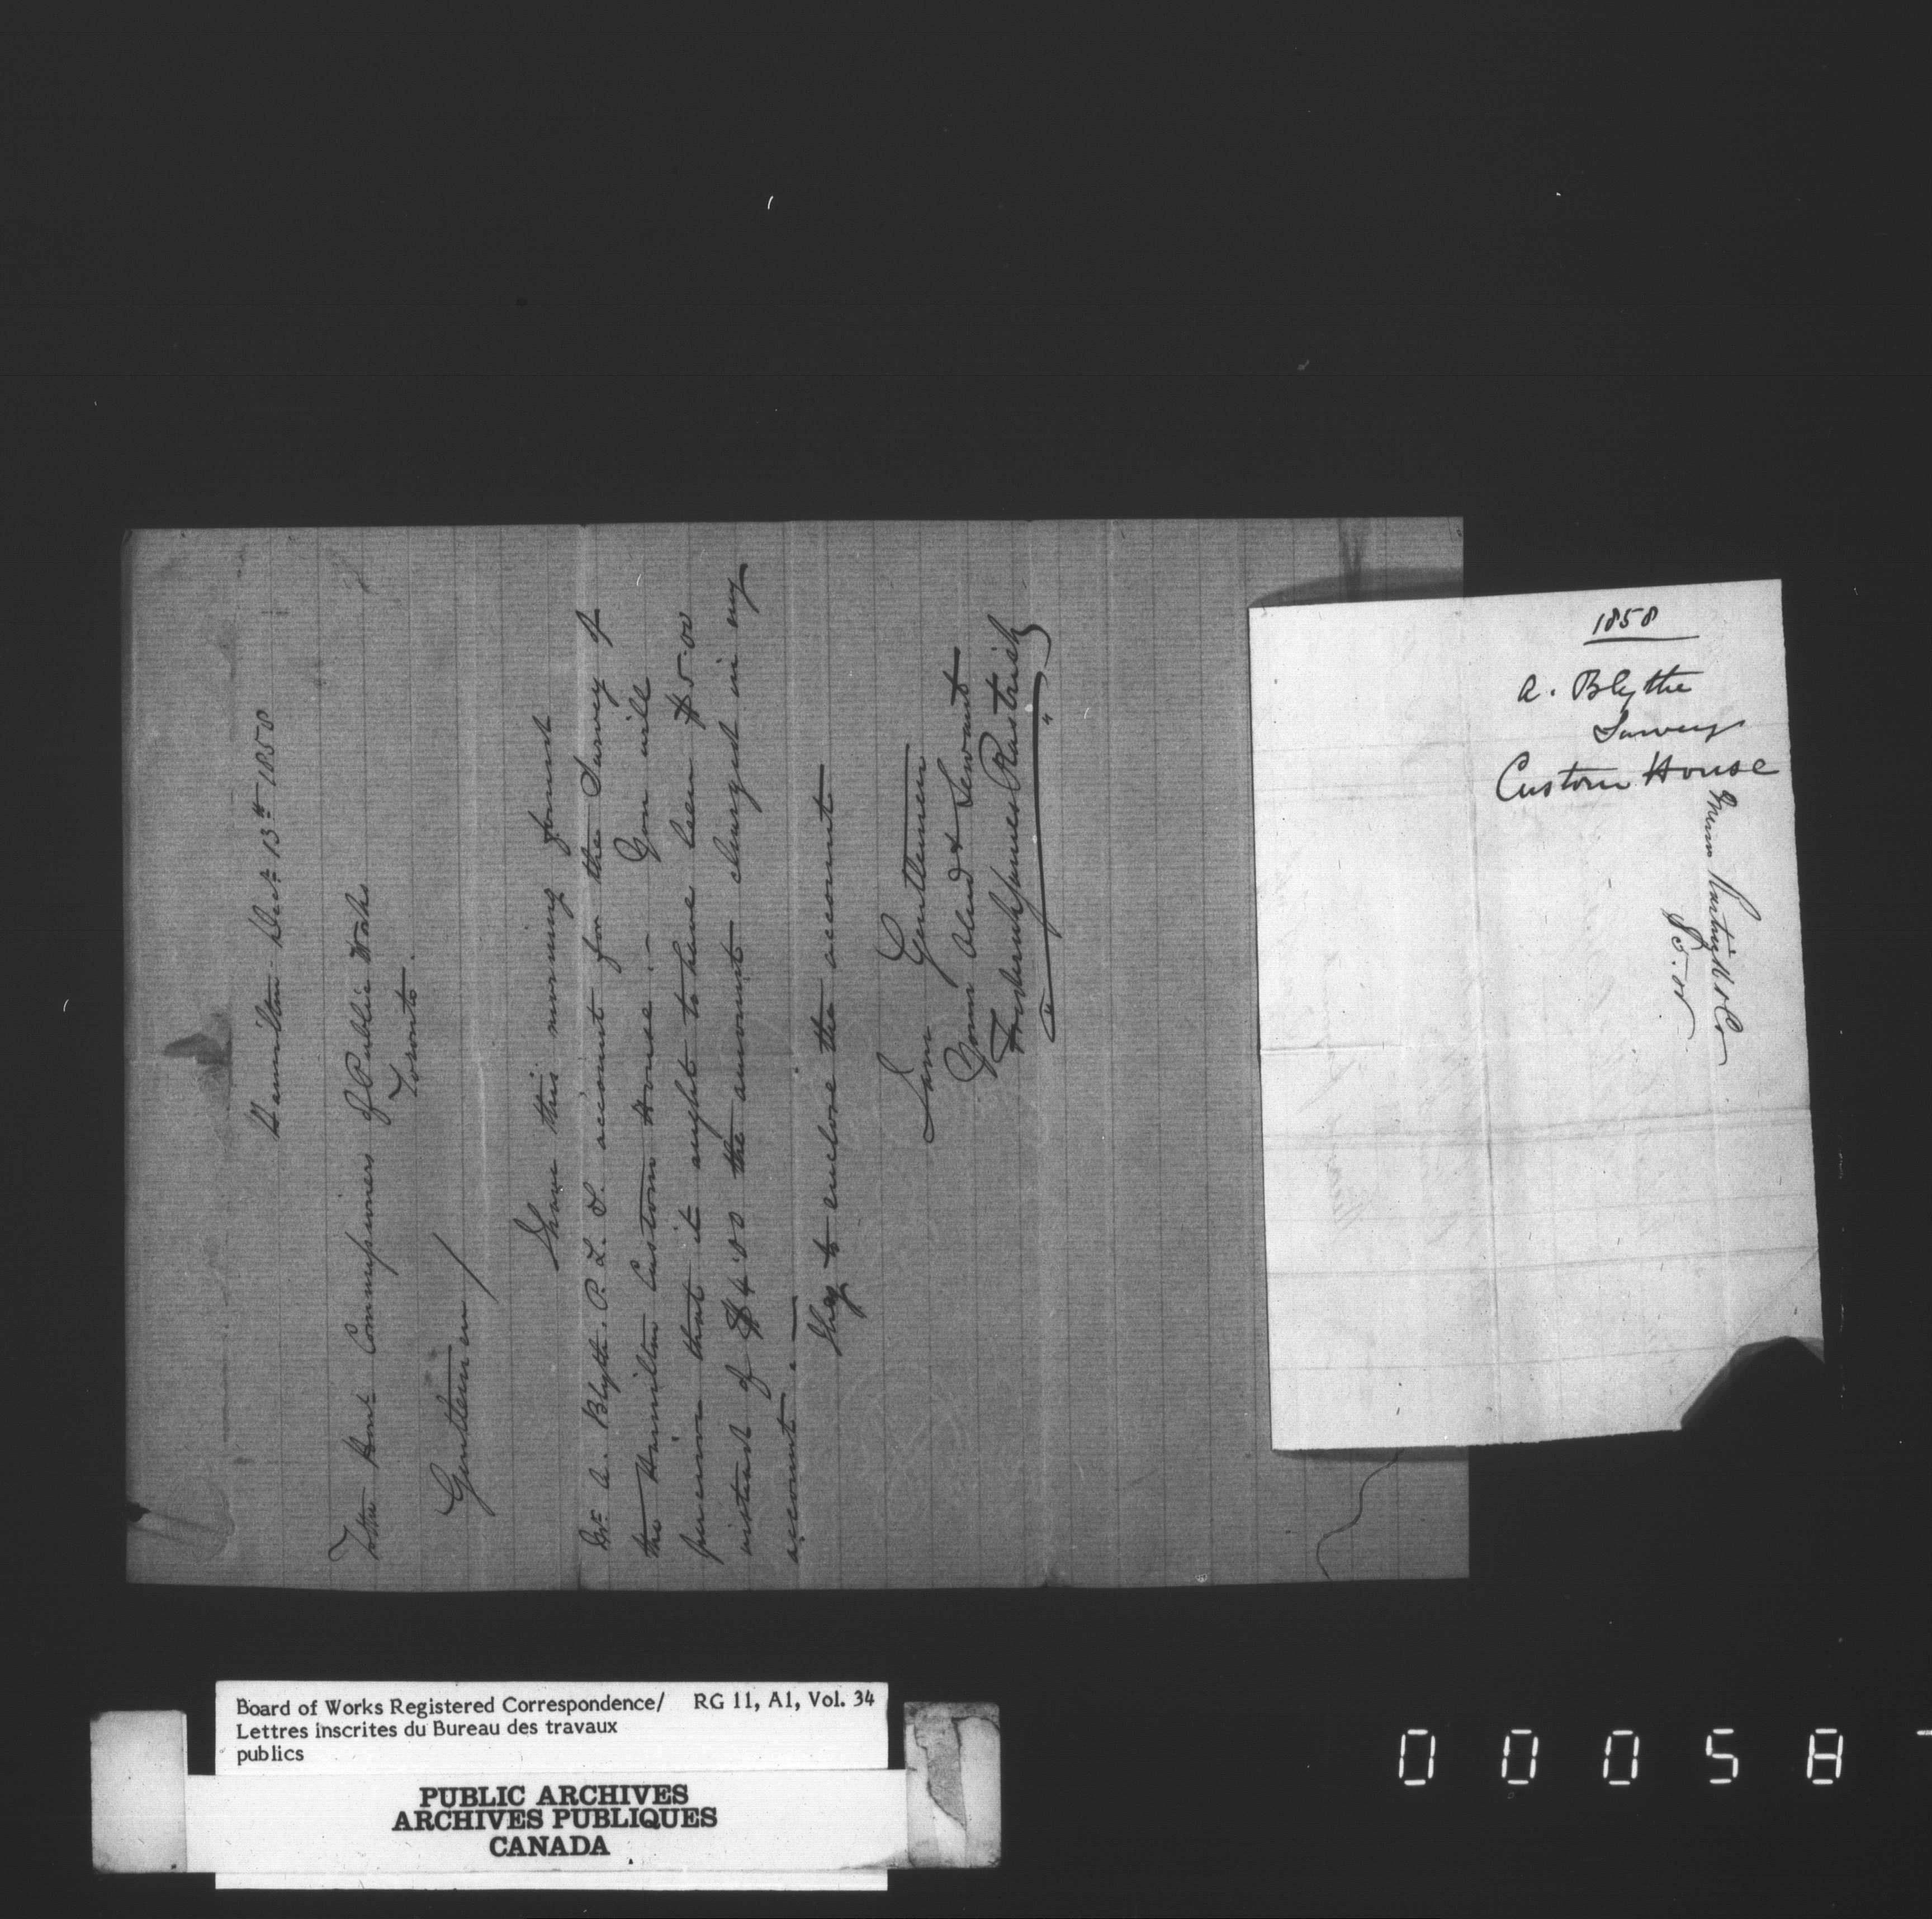 Hamilton. Dect. 13th 1858
To the Honl Commissioners of Public Works
Toronto.
Gentlemen/
I have this morning found
Mr. A. Blyth. P. L. S. account for the Survey of
the Hamilton Custom House. – You will
perceive that it ought to have been $5.00
instead of $4.00 the amount charged in my
account. –
I beg to enclose the account
I am Gentlemen
Your Obed t Servant
Frederick James Rastrick
1858
A. Blythe
Survey
Custom House
Messrs Rastrick & Co
$5.00
Board of Works Registered Correspondence/ RG 11, A1, Vol. 34
Lettres inscrites du Bureau des travaux
publics
PUBLIC ARCHIVES
ARCHIVES PUBLIQUES
CANADA
0 0 0 5 8